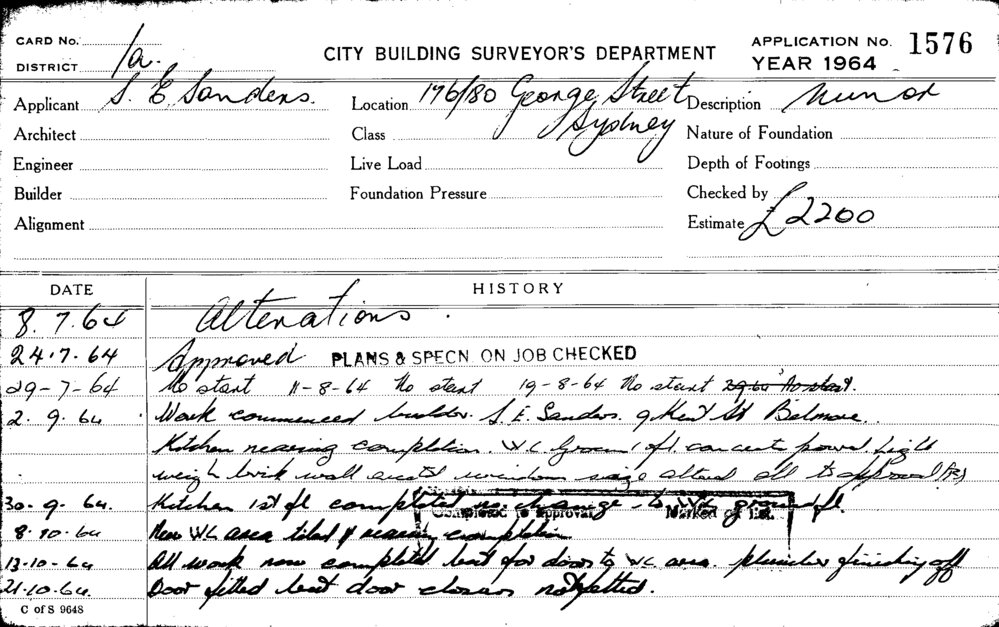 CARD No.
DISTRICT 1a.
CITY BUILDING SURVEYOR'S DEPARTMENT
APPLICATION No. 1576
YEAR 1964
Applicant S. E. Sanders.
Location 176/80 George Street Sydney
Description Minor
Architect
Class
Nature of Foundation
Engineer
Live Load
Depth of Footings
Builder
Foundation Pressure
Checked by
Alignment
Estimate £2200
DATE HISTORY
8.7.64 Alterations.
24.7.64 Approved PLANS & SPECN. ON JOB CHECKED
29-7-64 No start 11-8-64 No start 19-8-64 No start
2.9.64 Work commenced builder. S. E. Sanders. 9 Kent St Belmore.
Kitchen nearing completion. W.C. 1 ft. concrete
brick wall window size all to approval
30.9.64. Kitchen 1st fl completed no change to WC ground fl.
Completed to approval Marked off list
8.10.64 New WC area tiled & nearing completion
13-10-64 All work now completed but for door to WC area. plumber finishing off
21.10.64. Door fitted but door closer not fitted.
C of S 9648